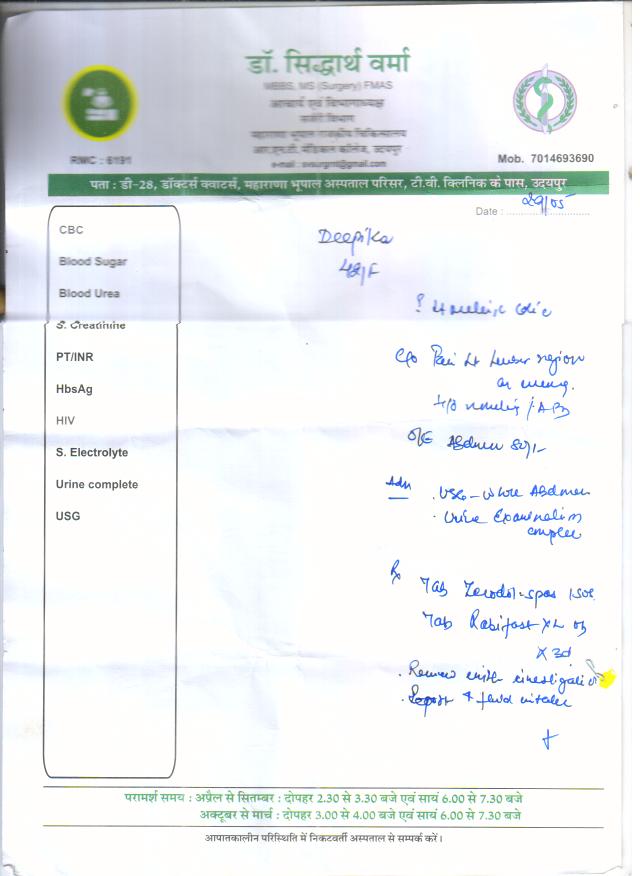 डॉ. सिद्धार्थ वर्मा
MBBS, MS (Surgery) FMAS
आचार्य एवं विभागाध्यक्ष
सर्जरी विभाग
महाराणा भूपाल राजकीय चिकित्सालय
आर.एन.टी. मेडिकल कॉलेज, उदयपुर
RMC : 6191
Mob. 7014693690
पता : डी-28, डॉक्टर्स क्वाटर्स, महाराणा भूपाल अस्पताल परिसर, टी.वी. क्लिनिक के पास, उदयपुर
Date : 29/05
CBC
Blood Sugar
Blood Urea
S. Creatinine
PT/INR
HbsAg
HIV
S. Electrolyte
Urine complete
USG
Deepika
42/F
? Lt
colic
C/o Pain Lt Lumbar region
O/E Abdomen
Adv
USG - Whole Abdomen
Urine Examination
complete
Rx
Tab Zerodol-spas
Tab Rabifast XL
x 3d
Review with investigation
Report & fluid intake
परामर्श समय : अप्रैल से सितम्बर : दोपहर 2.30 से 3.30 बजे एवं सायं 6.00 से 7.30 बजे
अक्टूबर से मार्च : दोपहर 3.00 से 4.00 बजे एवं सायं 6.00 से 7.30 बजे
आपातकालीन परिस्थिति में निकटवर्ती अस्पताल से सम्पर्क करें।